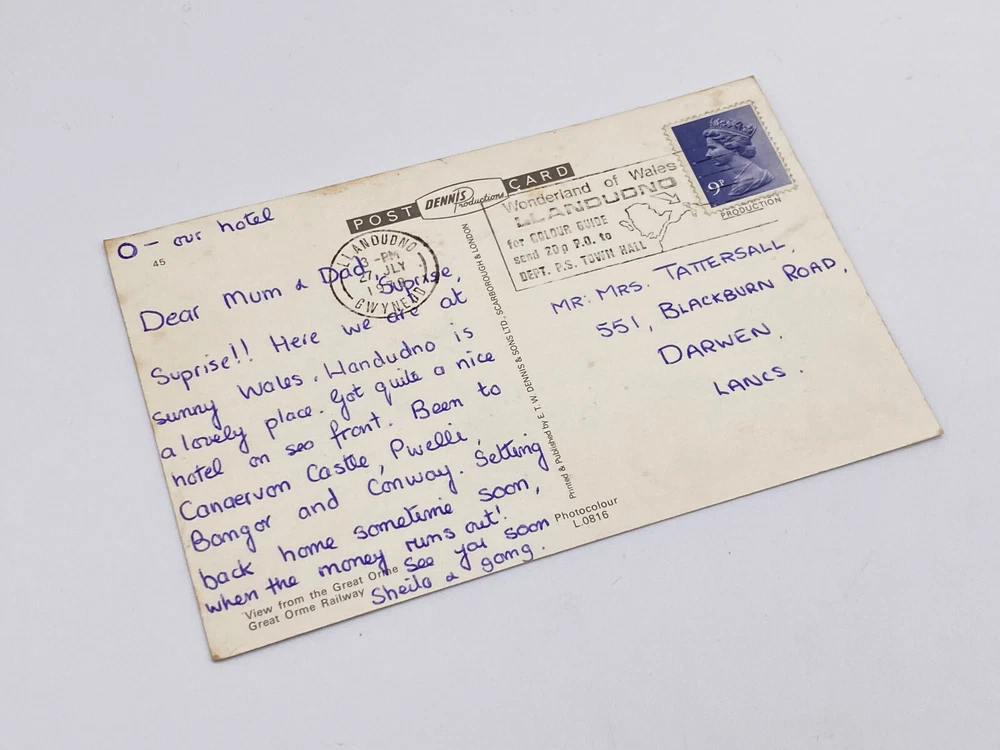 O - our hotel
45
POST DENNIS Productions CARD
LLANDUDNO
3-PM
27 JLY
GWYNEDD
Wonderland of Wales
LLANDUDNO
for COLOUR GUIDE
send 20p P.O. to
DEPT. P.S. TOWN HALL
9P
PRODUCTION
Dear Mum & Dad, Suprise,
Suprise!! Here we are at
sunny Wales. Llandudno is
a lovely place. Got quite a nice
hotel on sea front. Been to
Canaervon Castle, Pwelli,
Bangor and Conway. Setting
back home sometime soon,
when the money runs out!
See you soon
Sheila & gang.
View from the Great Orme
Great Orme Railway
Printed & Published by E. T. W. DENNIS & SONS LTD., SCARBOROUGH & LONDON
Photocolour
L.0816
MR. MRS. TATTERSALL,
551, BLACKBURN ROAD,
DARWEN,
LANCS.